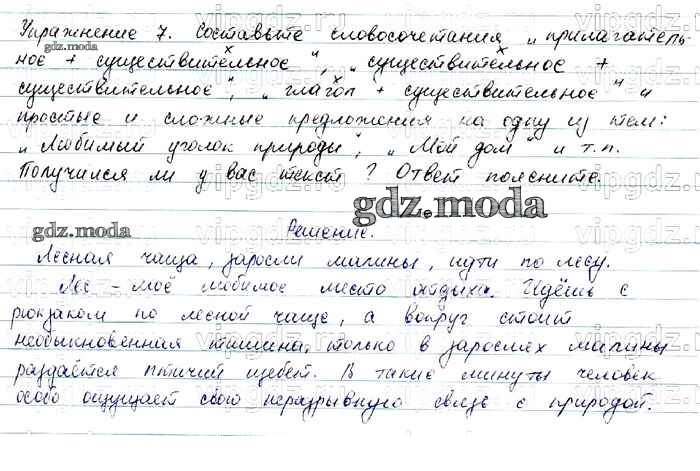 Упражнение 7. Составьте словосочетания „прилагатель-
ное + существительное“, „существительное +
существительное“, „глагол + существительное“ и
простые и сложные предложения на одну из тем:
„Любимый уголок природы“, „Мой дом“ и т.п.
Получился ли у вас текст? Ответ поясните.
gdz.moda
gdz.moda
gdz.moda
Решение.
Лесная чаща, заросли малины, идти по лесу.
Лес – моё любимое место отдыха. Идёшь с
рюкзаком по лесной чаще, а вокруг стоит
необыкновенная тишина, только в зарослях малины
раздаётся птичий щебет. В такие минуты человек
особо ощущает свою неразрывную связь с природой.